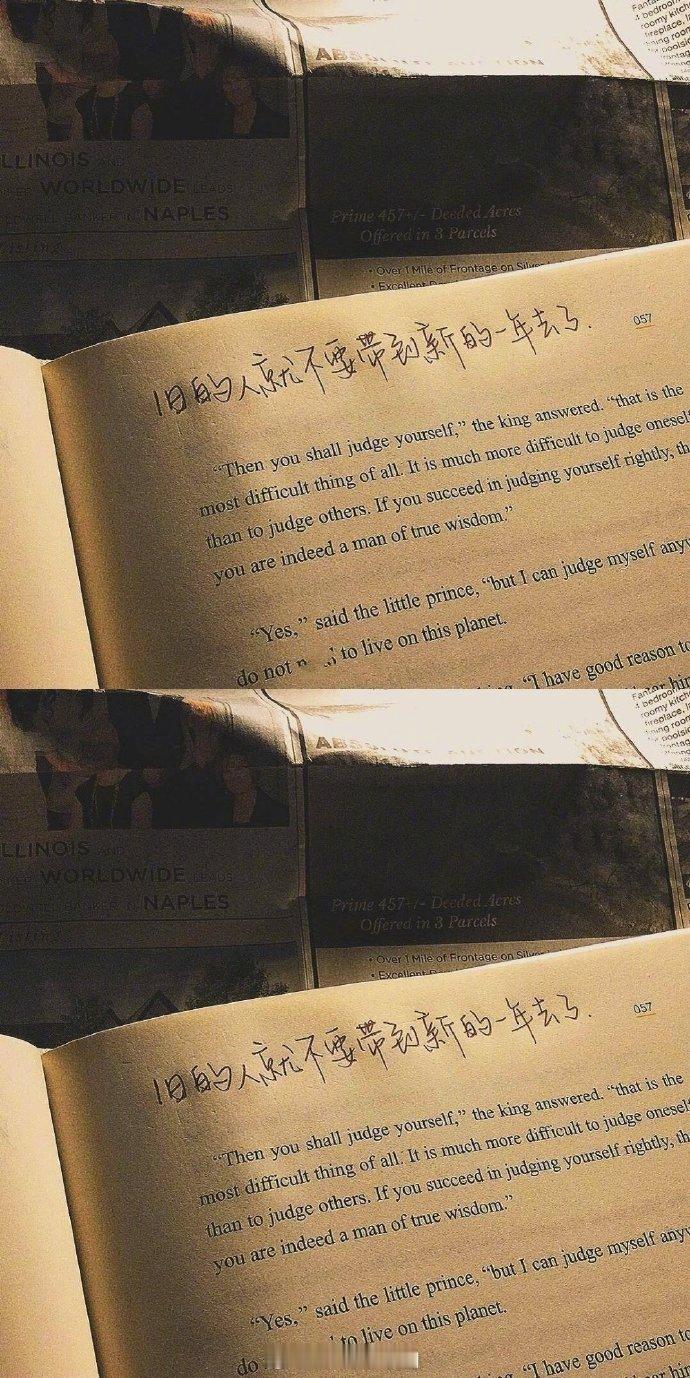 ABSOLUTE AUCTION
bedroom
roomy kitch
fireplace,
ning room
poolsid
LLINOIS AND
WORLDWIDE LEADS
IN NAPLES
Prime 457+/- Deeded Acres
Offered in 3 Parcels
• Over 1 Mile of Frontage on Silv
• Excellent
057
旧的人就不要带到新的一年去了.
“Then you shall judge yourself,” the king answered. “that is the
most difficult thing of all. It is much more difficult to judge onesel
than to judge others. If you succeed in judging yourself rightly, th
you are indeed a man of true wisdom.”
“Yes,” said the little prince, “but I can judge myself anyw
do not to live on this planet.
“I have good reason to
ABSOLUTE AUCTION
bedroom
roomy kitch
fireplace,
ning room
poolsid
LLINOIS AND
WORLDWIDE LEADS
IN NAPLES
Prime 457+/- Deeded Acres
Offered in 3 Parcels
• Over 1 Mile of Frontage on Silv
• Excellent
057
旧的人就不要带到新的一年去了.
“Then you shall judge yourself,” the king answered. “that is the
most difficult thing of all. It is much more difficult to judge onesel
than to judge others. If you succeed in judging yourself rightly, th
you are indeed a man of true wisdom.”
“Yes,” said the little prince, “but I can judge myself anyw
do to live on this planet.
“I have good reason to